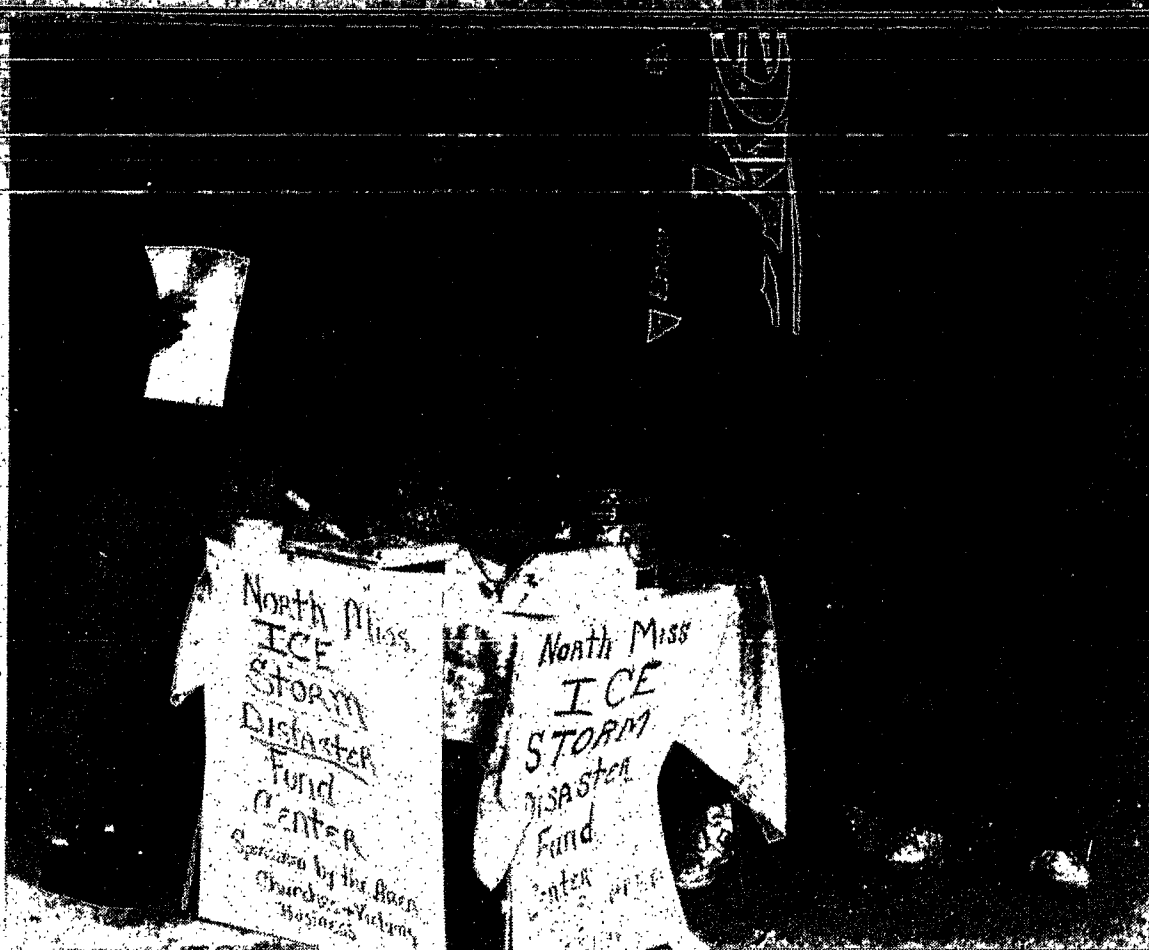 North Miss
ICE
Storm
Disaster
Fund
Center
Sponsored by the Area
Churches + Victims
Business
North Miss
ICE
STORM
DiSASter
Fund
Center